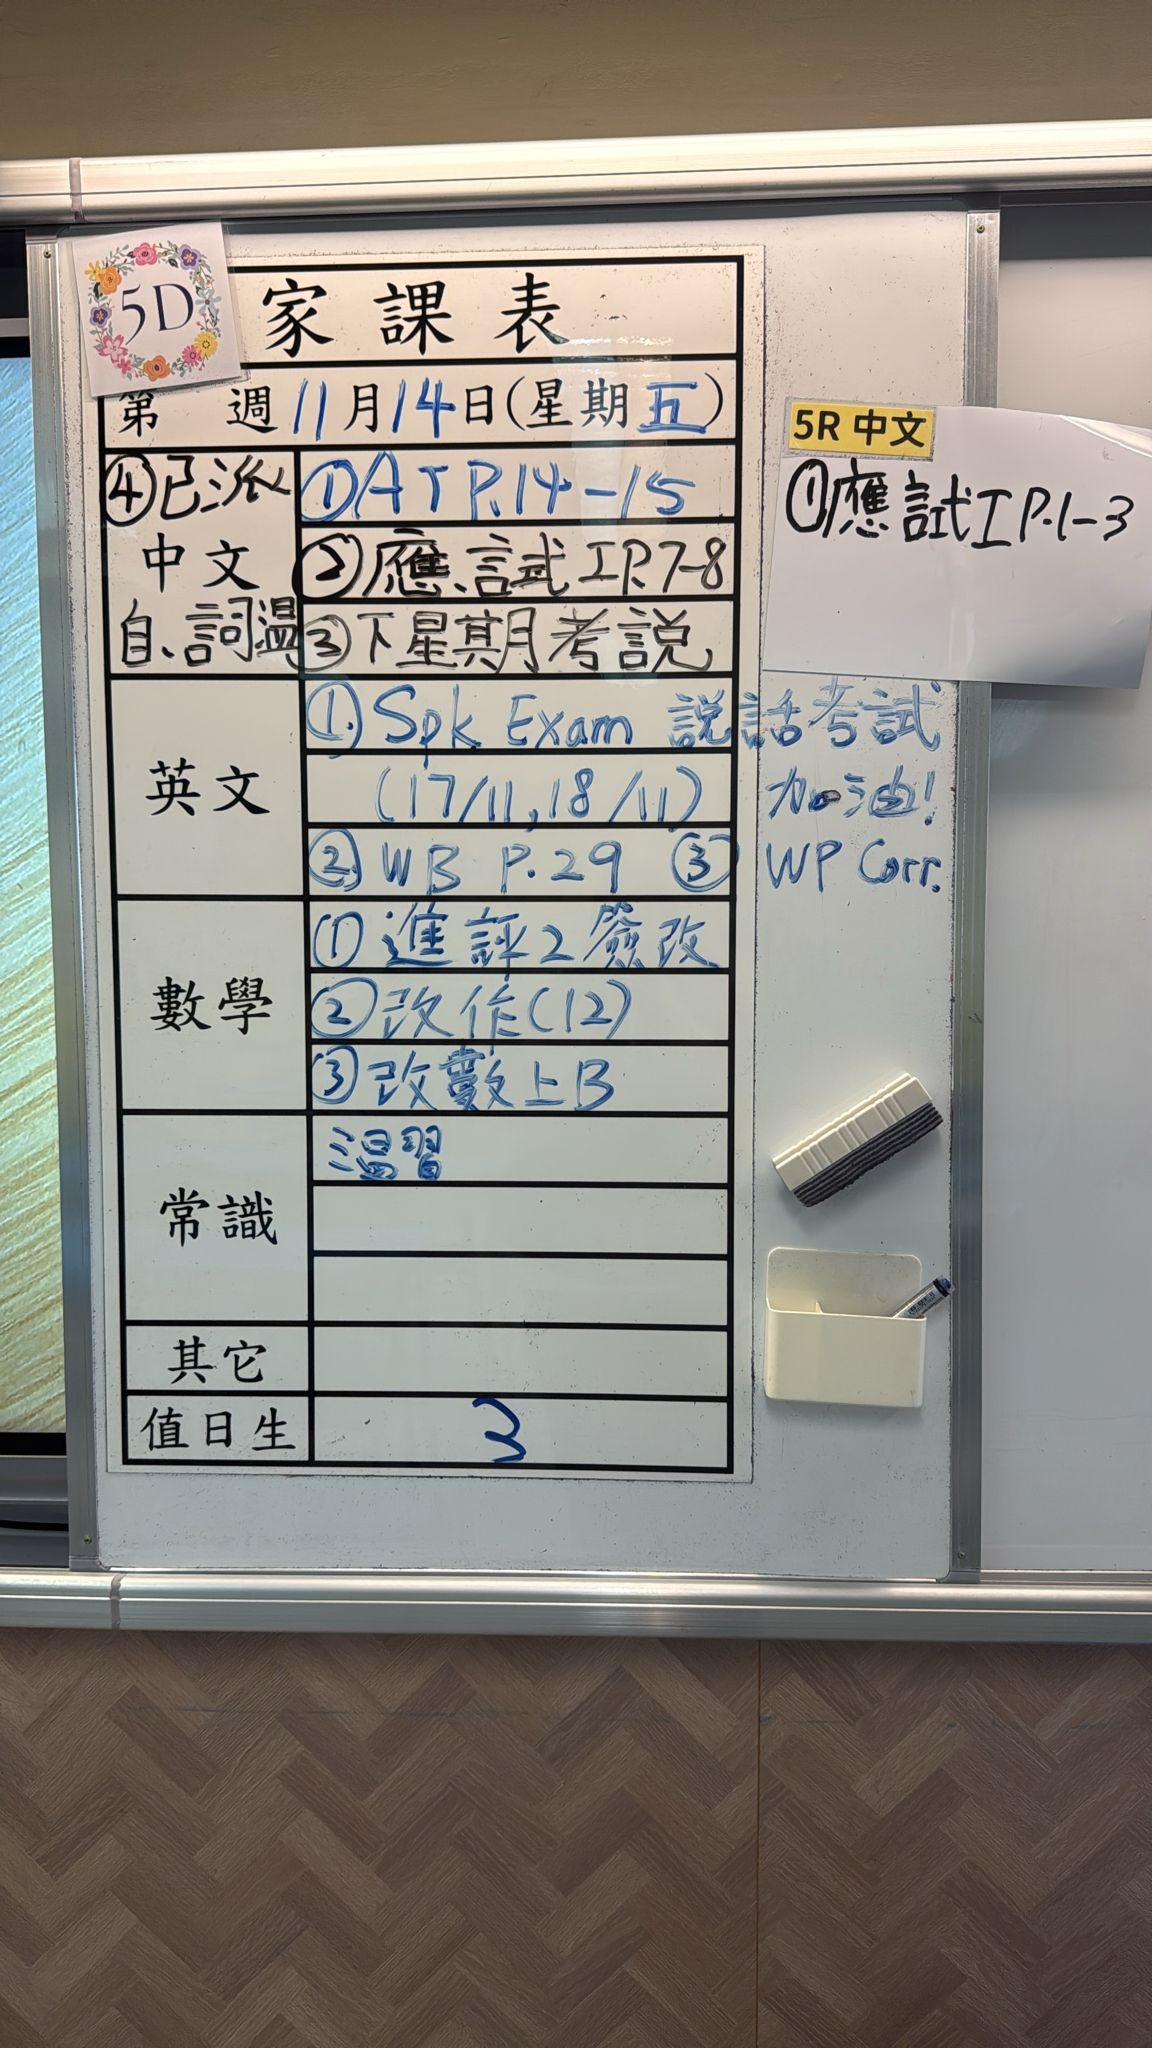 5D
家課表
第 週 11月14日(星期五)
④已派
中文
自、詞溫
①AT P.14-15
②應、試工P.7-8
③下星期考說
英文
①Spk Exam 說話考試
(17/11,18/11) 加油!
②WB P.29 ③WP Corr.
數學
①進評2簽改
②改作(12)
③改數上B
常識
溫習
其它
值日生
3
5R 中文
①應試工P.1-3